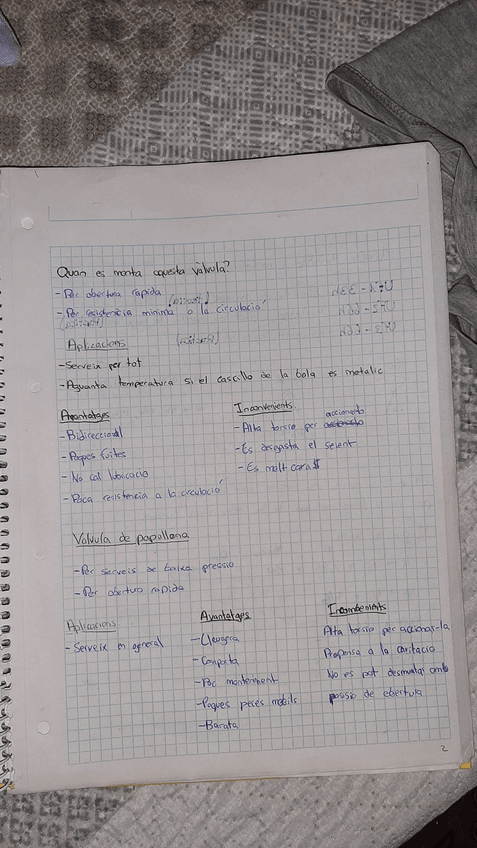 Quan es monta aquesta Vàlvula?
- Per obertura rapida
- Per resistencia minima a la circulació
Aplicacions
- Serveix per tot
- Aguanta temperatura si el cascillo de la bola es metalic
Avantatges
- Bidireccional
- Poques fuites
- No cal lubricacio
- Poca resistencia a la circulació
Inconvenients
- Alta torsio per accionarlo
- Es desgasta el seient
- Es molt cara $
Valvula de papallona
- Per serveis de baixa pressio
- Per obertura rapida
Aplicacions
- Serveix en general
Avantatges
- Lleugera
- Compacta
- Poc manteniment
- Poques peces mobils
- Barata
Inconvenients
Alta torsio per accionar-la
Propensa a la cavitacio
No es pot desmuntar amb
posisio de obertura
2